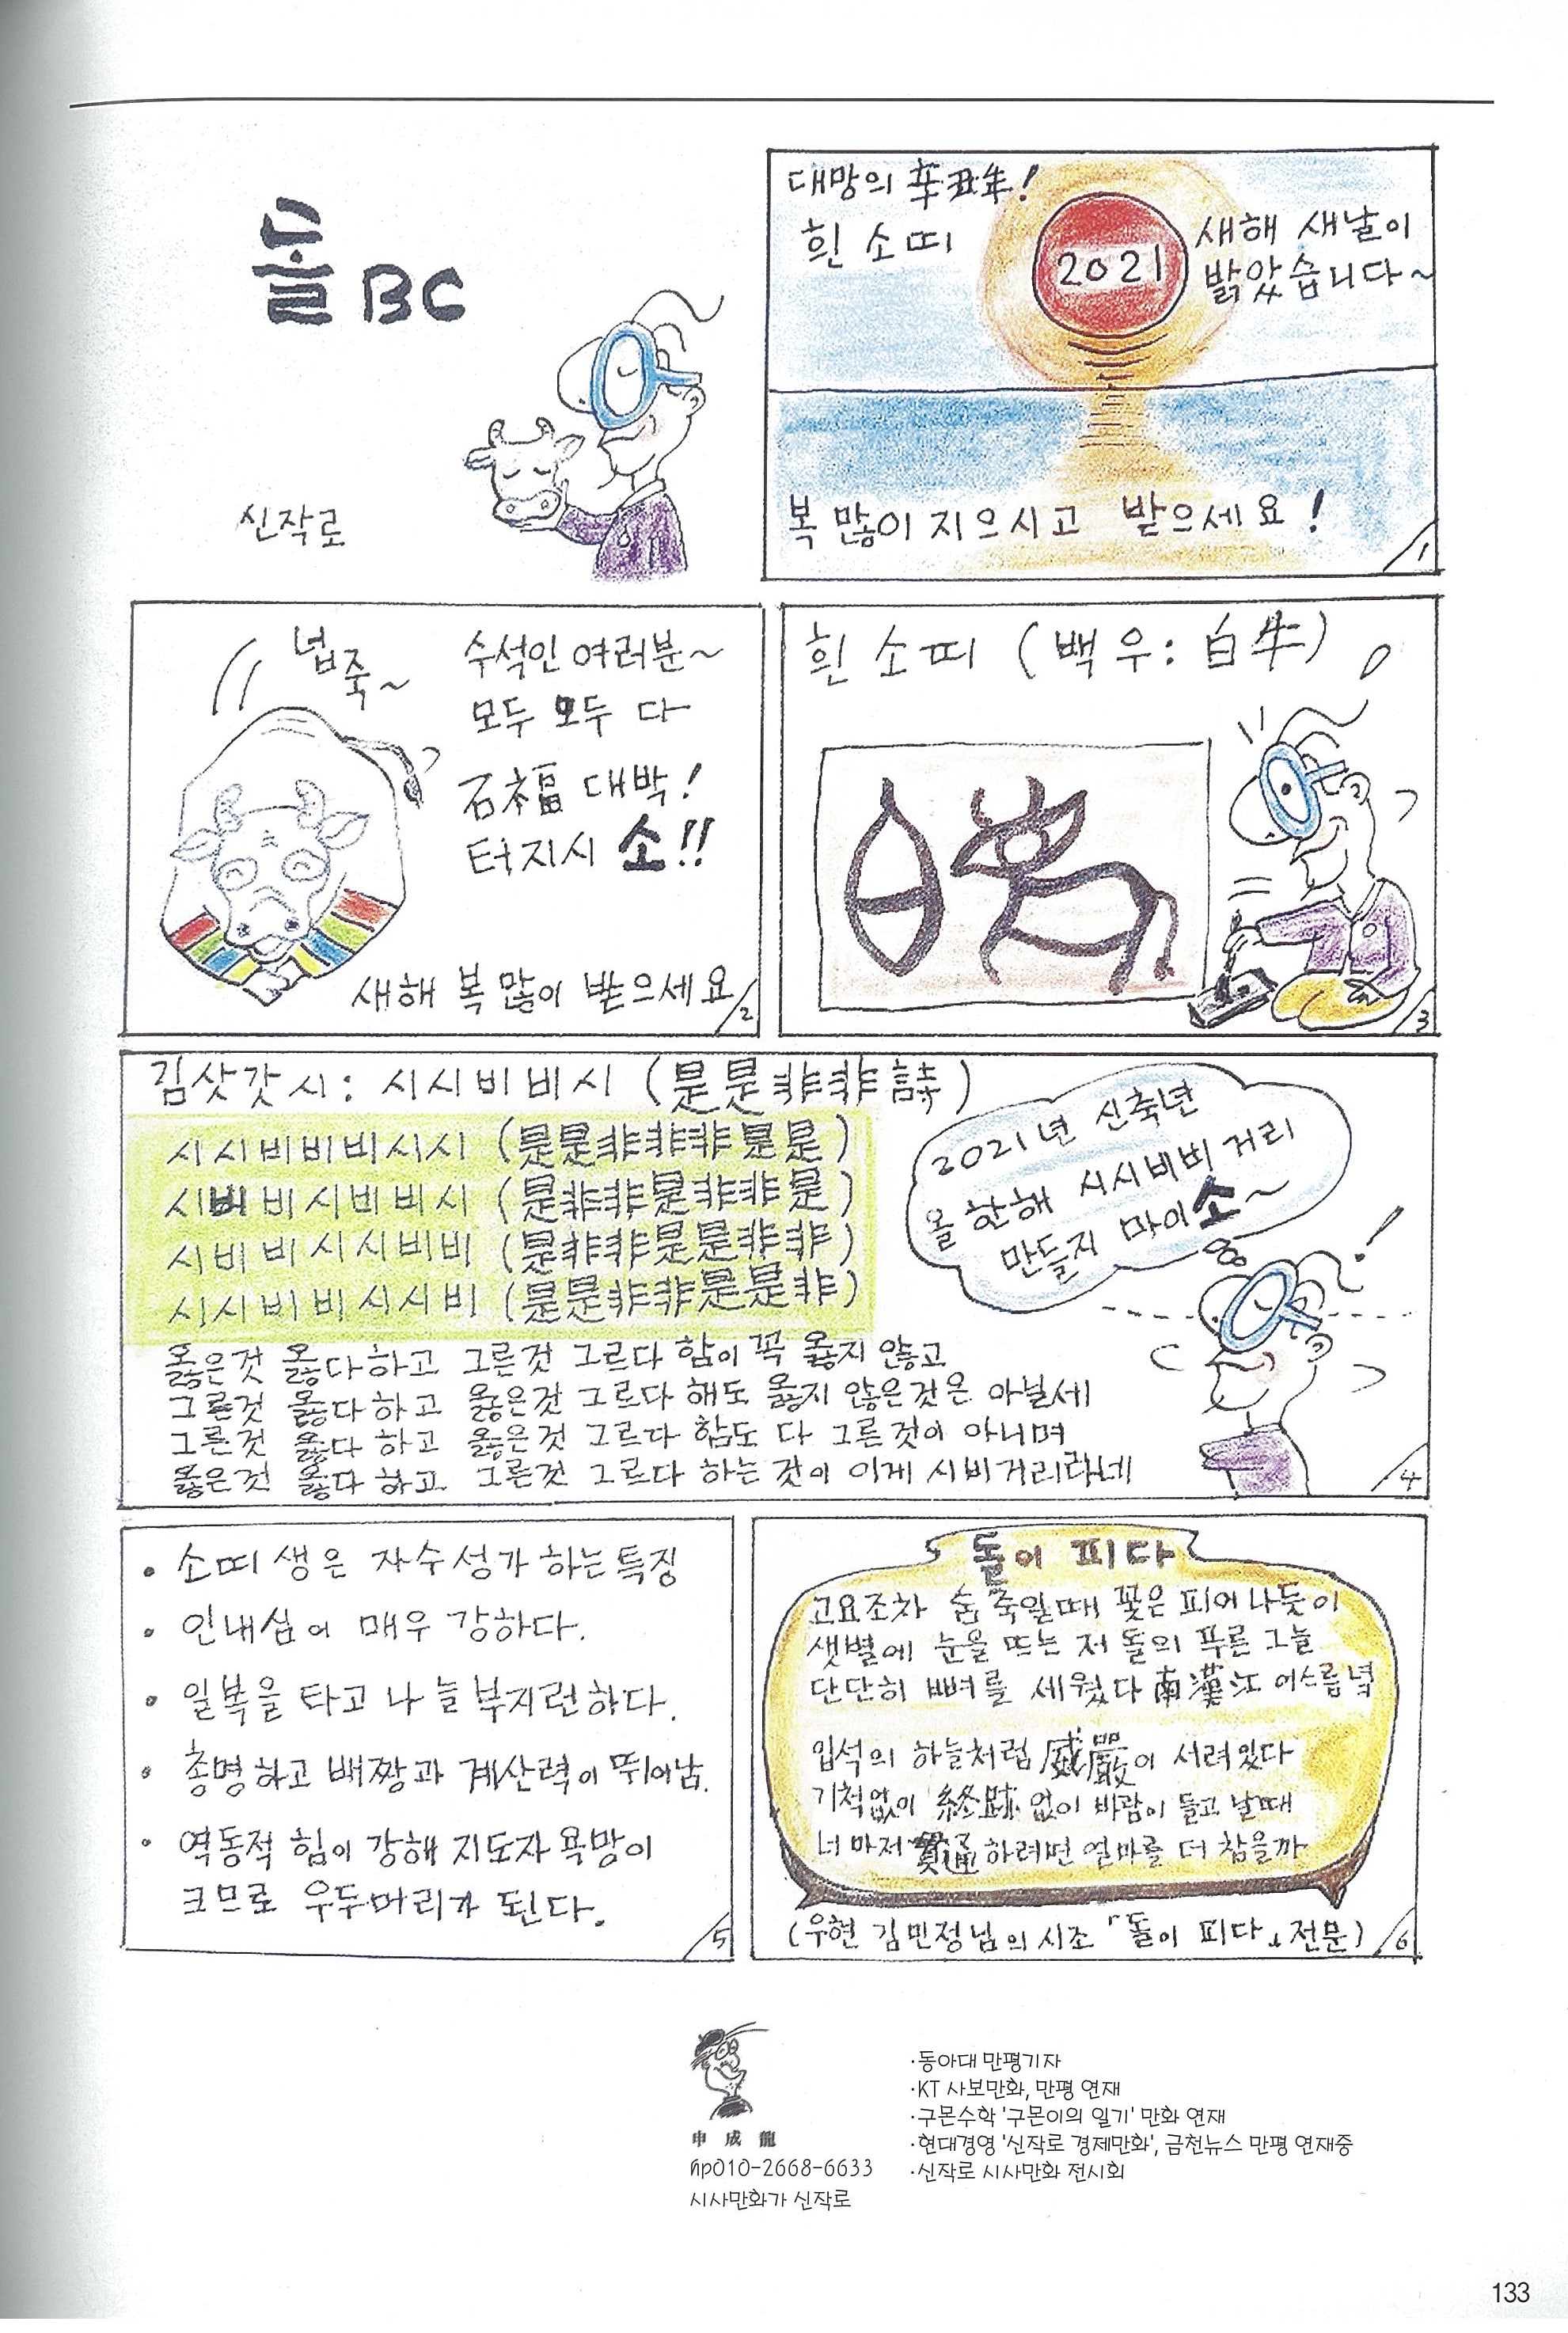 돌 BC
신작로
대망의 辛丑年!
흰 소띠
2021
새해 새날이
밝았습니다~
복 많이 지으시고 받으세요!
1
넙죽~
수석인 여러분~
모두 모두 다
石福 대박!
터지시 소!!
새해 복 많이 받으세요
2
흰 소띠 (백우: 白牛)
3
김삿갓 시: 시시비비시 (是是非非詩)
시시비비비시시 (是是非非非是是)
시비비시비비시 (是非非是非非是)
시비비시시비비 (是非非是是非非)
시시비비시시비 (是是非非是是非)
옳은것 옳다하고 그른것 그르다 함이 꼭 옳지 않고
그른것 옳다하고 옳은것 그르다 해도 옳지 않은것은 아닐세
그른것 옳다 하고 옳은것 그르다 함도 다 그른것이 아니며
옳은것 옳다하고 그른것 그르다 하는것이 이게 시비거리라네
2021년 신축년
올 한해 시시비비 거리
만들지 마이소~
4
• 소띠생은 자수성가 하는 특징
• 인내심이 매우 강하다.
• 일복을 타고 나 늘 부지런하다.
• 총명하고 배짱과 계산력이 뛰어남.
• 역동적 힘이 강해 지도자 욕망이
크므로 우두머리가 된다.
5
돌이 피다
고요조차 숨죽일때 꽃은 피어나듯이
샛별에 눈을 뜨는 저 돌의 푸른 그늘
단단히 뼈를 세웠다 南漢江 어스름녘
입석의 하늘처럼 威嚴이 서려있다
기척없이 終跡 없이 바람이 들고 날때
너마저 貫通하려면 얼마를 더 참을까
(우현 김민정님의 시조 「돌이 피다」 전문)
6
申 成 龍
hp010-2668-6633
시사만화가 신작로
·동아대 만평기자
·KT 사보만화, 만평 연재
·구몬수학 '구몬이의 일기' 만화 연재
·현대경영 '신작로 경제만화', 금천뉴스 만평 연재중
·신작로 시사만화 전시회
133